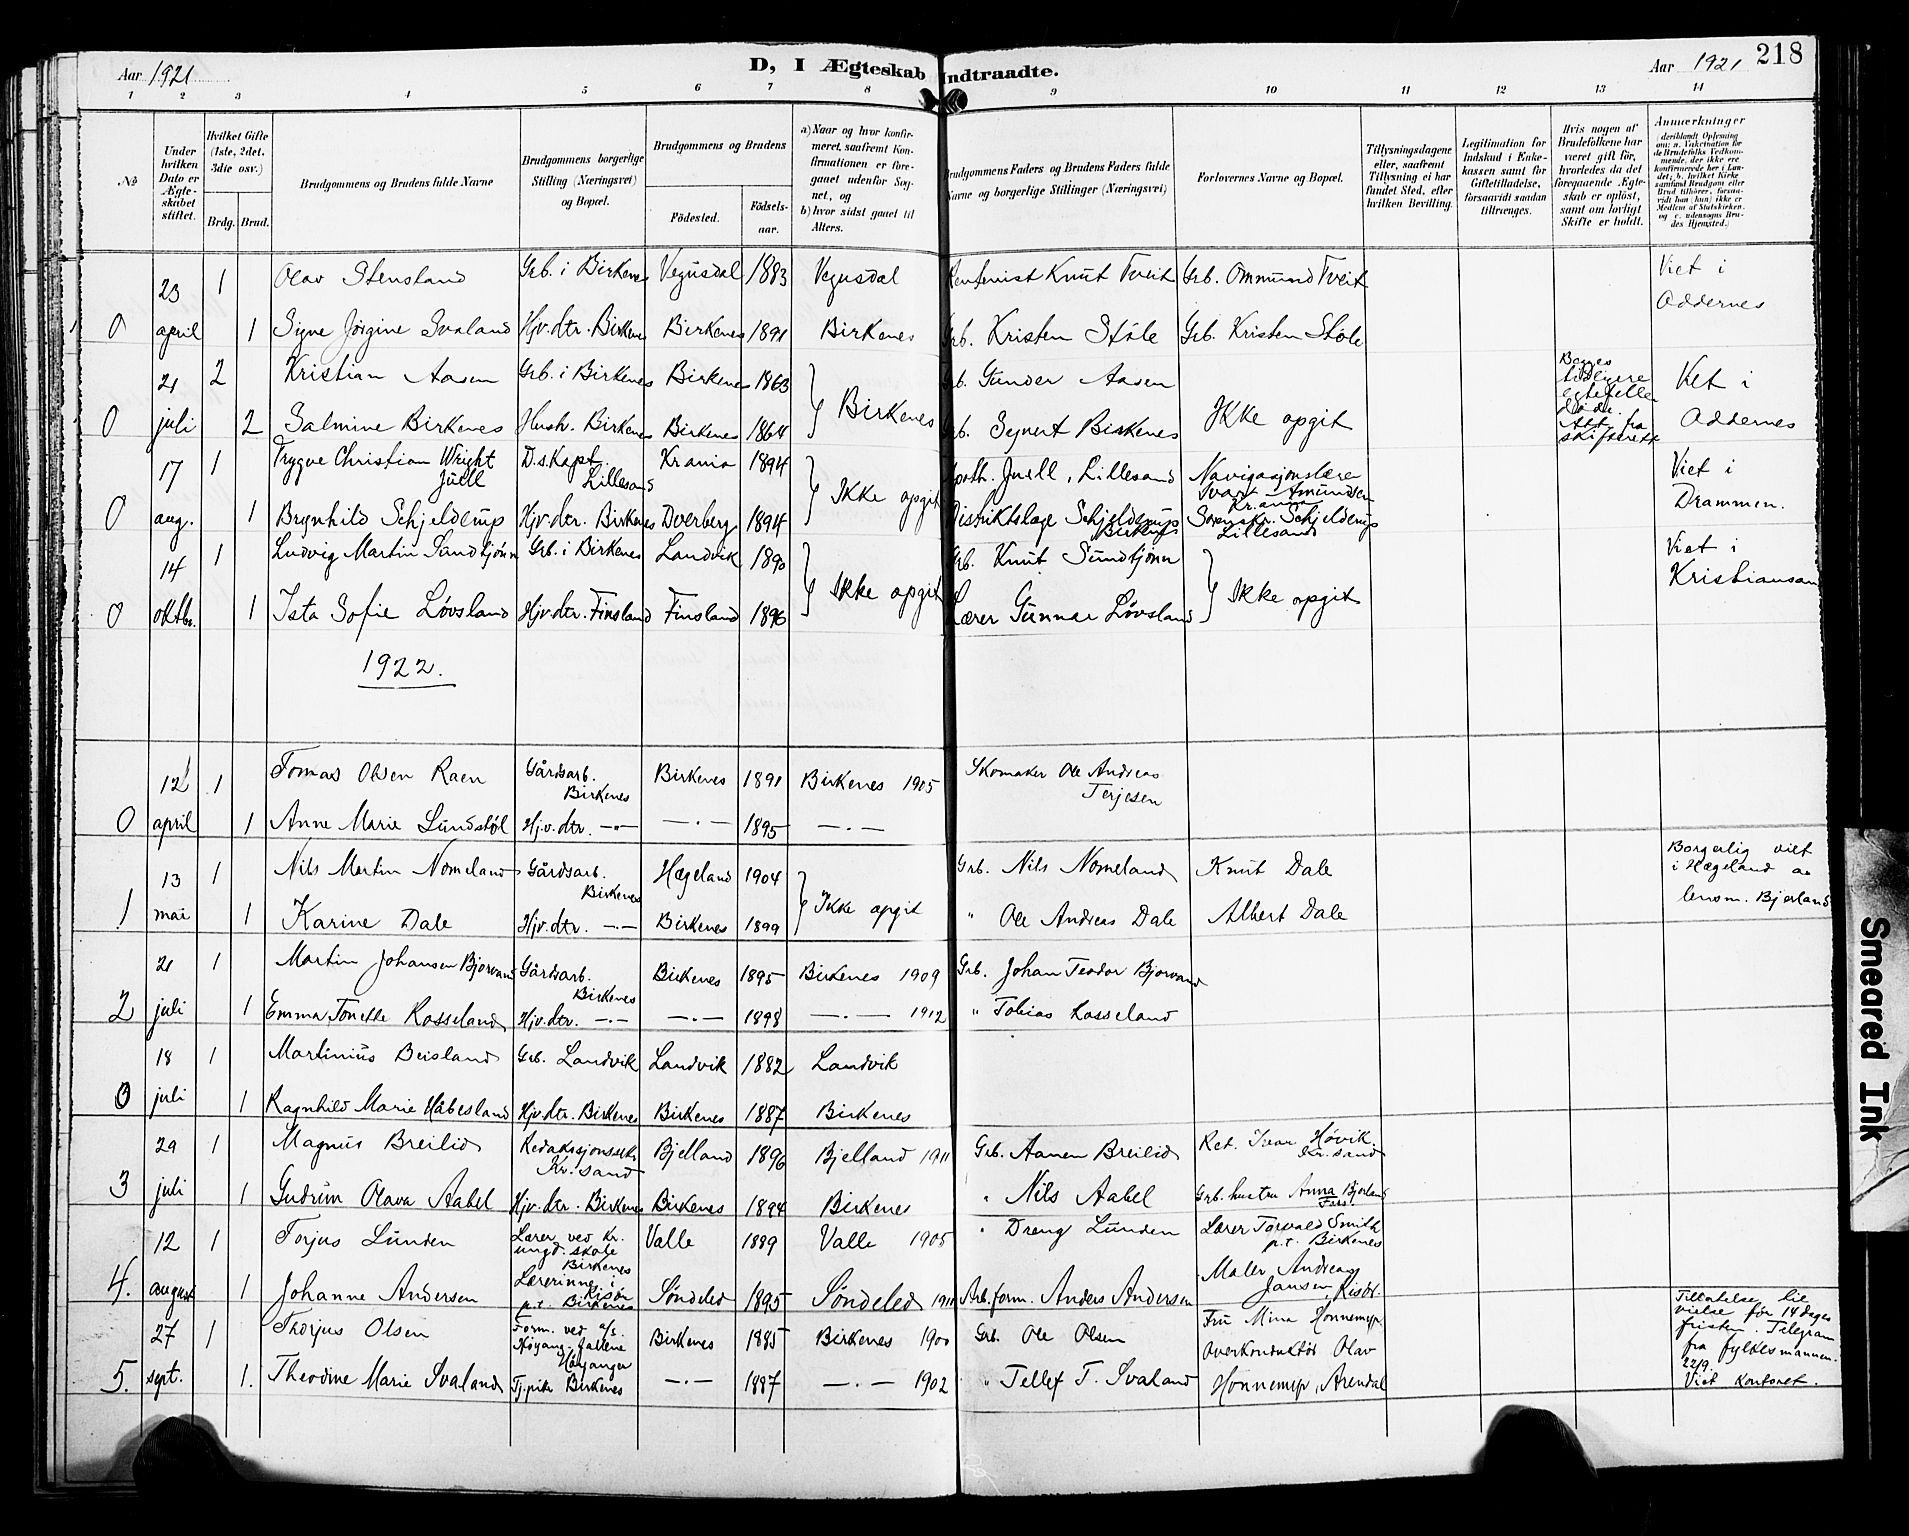 Aar 1921
D, I Ægteskab Indtraadte.
Aar 1921
218
1 2 3 4 5 6 7 8 9 10 11 12 13 14
No
Under hvilken Dato er Ægteskabet stiftet.
Hvilket Gifte (1ste, 2det, 3die osv.)
Brdg. Brud.
Brudgommens og Brudens fulde Navne
Brudgommens borgerlige Stilling (Næringsvei) og Bopæl.
Brudgommens og Brudens
Födested.
Födsels-aar.
a) Naar og hvor konfirmeret, saafremt Konfirmationen er foregaaet udenfor Sognet, og
b) hvor sidst gaaet til Alters.
Brudgommens Faders og Brudens Faders fulde Navne og borgerlige Stillinger (Næringsvei)
Forlovernes Navne og Bopæl.
Tillysningsdagene eller, saafremt Tillysning ei har fundet Sted, efter hvilken Bevilling.
Legitimation for Indskud i Enkekassen samt for Giftetilladelse, forsaavidt saadan tiltrænges.
Hvis nogen af Brudefolkene har været gift för, hvorledes da det foregaaende Ægteskab er oplöst, samt om lovligt Skifte er holdt.
Anmærkninger
23 1 Olav Stensland Grb. i Birkenes Vegusdal 1883 Vegusdal Knut Tveit Grb. Ommund Tveit Viet i Oddernes
0 april 1 Signe Jørgine Svaland Hjv.dtr. Birkenes Birkenes 1891 Birkenes Grb. Kristen Støle Grb. Kristen Støle
21 2 Kristian Aasen Grb. i Birkenes Birkenes 1863 Birkenes Grb. Gunder Aasen Ikke opgit Begges tidligere egtefeller døde. Att. fra skifterett Viet i Oddernes
0 juli 2 Salmine Birkenes Hush. Birkenes Birkenes 1864 Grb. Syvert Birkenes
17 1 Trygve Christian Wright Juell D.s.Kapt. Lillesand Krania 1894 Ikke opgit Apoth. Juell, Lillesand Navigasjonslærer Svart-Amundsen Kr.ania Viet i Drammen.
0 aug. 1 Brynhild Schjelderup Hjv.dtr. Birkenes Dverberg 1894 Distriktslæge Schjelderup Birkenes Sorenskr. Schjelderup Lillesand
14 1 Ludvig Martin Sundtjønn Grb. i Birkenes Landvik 1890 Ikke opgit Grb. Knut Sundtjønn Ikke opgit Viet i Kristiansan
0 oktbr. 1 Ista Sofie Løvsland Hjv.dtr. Finsland Finsland 1896 Lærer Gunnar Løvsland
1922.
12 1 Tomas Olsen Raen Gårdsarb. Birkenes Birkenes 1891 Birkenes 1905 Skomaker Ole Andreas Terjesen
0 april 1 Anne Marie Lundstøl Hjv.dtr. —"— —"— 1895 —"—
13 1 Nils Martin Nomeland Gårdsarb. Birkenes Hægeland 1904 Ikke opgit Grb. Nils Nomeland Knut Dale Borgerlig viet i Hægeland av lensm. Bjorland
1 mai 1 Karine Dale Hjv.dtr. —"— Birkenes 1899 " Ole Andreas Dale Albert Dale
21 1 Martin Johansen Bjorvand Gårdsarb. Birkenes Birkenes 1895 Birkenes 1909 Grb. Johan Teodor Bjorvand
2 juli 1 Emma Tonette Rosseland Hjv.dtr. —"— —"— 1898 —"— 1912 " Tobias Rosseland
18 1 Martinius Beisland Grb. Landvik Landvik 1882 Landvik
0 juli 1 Ragnhild Marie Håbesland Hjv.dtr. Birkenes Birkenes 1887 Birkenes
29 1 Magnus Breilid Redaksjonssekr. Kr.sand Bjelland 1896 Bjelland 1911 Grb. Aanen Breilid Red. Ivar Høvik. Kr.sand
3 juli 1 Gudrun Olava Aabel Hjv.dtr. Birkenes Birkenes 1894 Birkenes " Nils Aabel Grb. hustru Anna Bjorland
12 1 Torjus Lunden Lærer ved Kr. ungd. skole Birkenes Valle 1889 Valle 1905 " Dreng Lunden Lærer Torvald Smith p.t. Birkenes
4. august 1 Johanne Andersen Lærerinne i Risør p.t. Birkenes Søndeled 1895 Søndeled 1911 Arb.form. Anders Andersen Maler Andreas Jansen, Risør.
27 1 Thorjus Olsen Form. ved a/s. Høyang-fallene Høyanger Birkenes 1885 Birkenes 1900 Grb. Ole Olsen Fru Mina Honnemyr Tillatelse til vielse før 14 dages fristen. Telegram fra fylkesmannen. 22/9. Viet kontoret.
5. sept. 1. Theodine Marie Svaland Tj.pike Birkenes —"— 1887 —"— 1902 " Tellef T. Svaland Overkonduktør Olav Honnemyr, Arendal
Smeared Ink